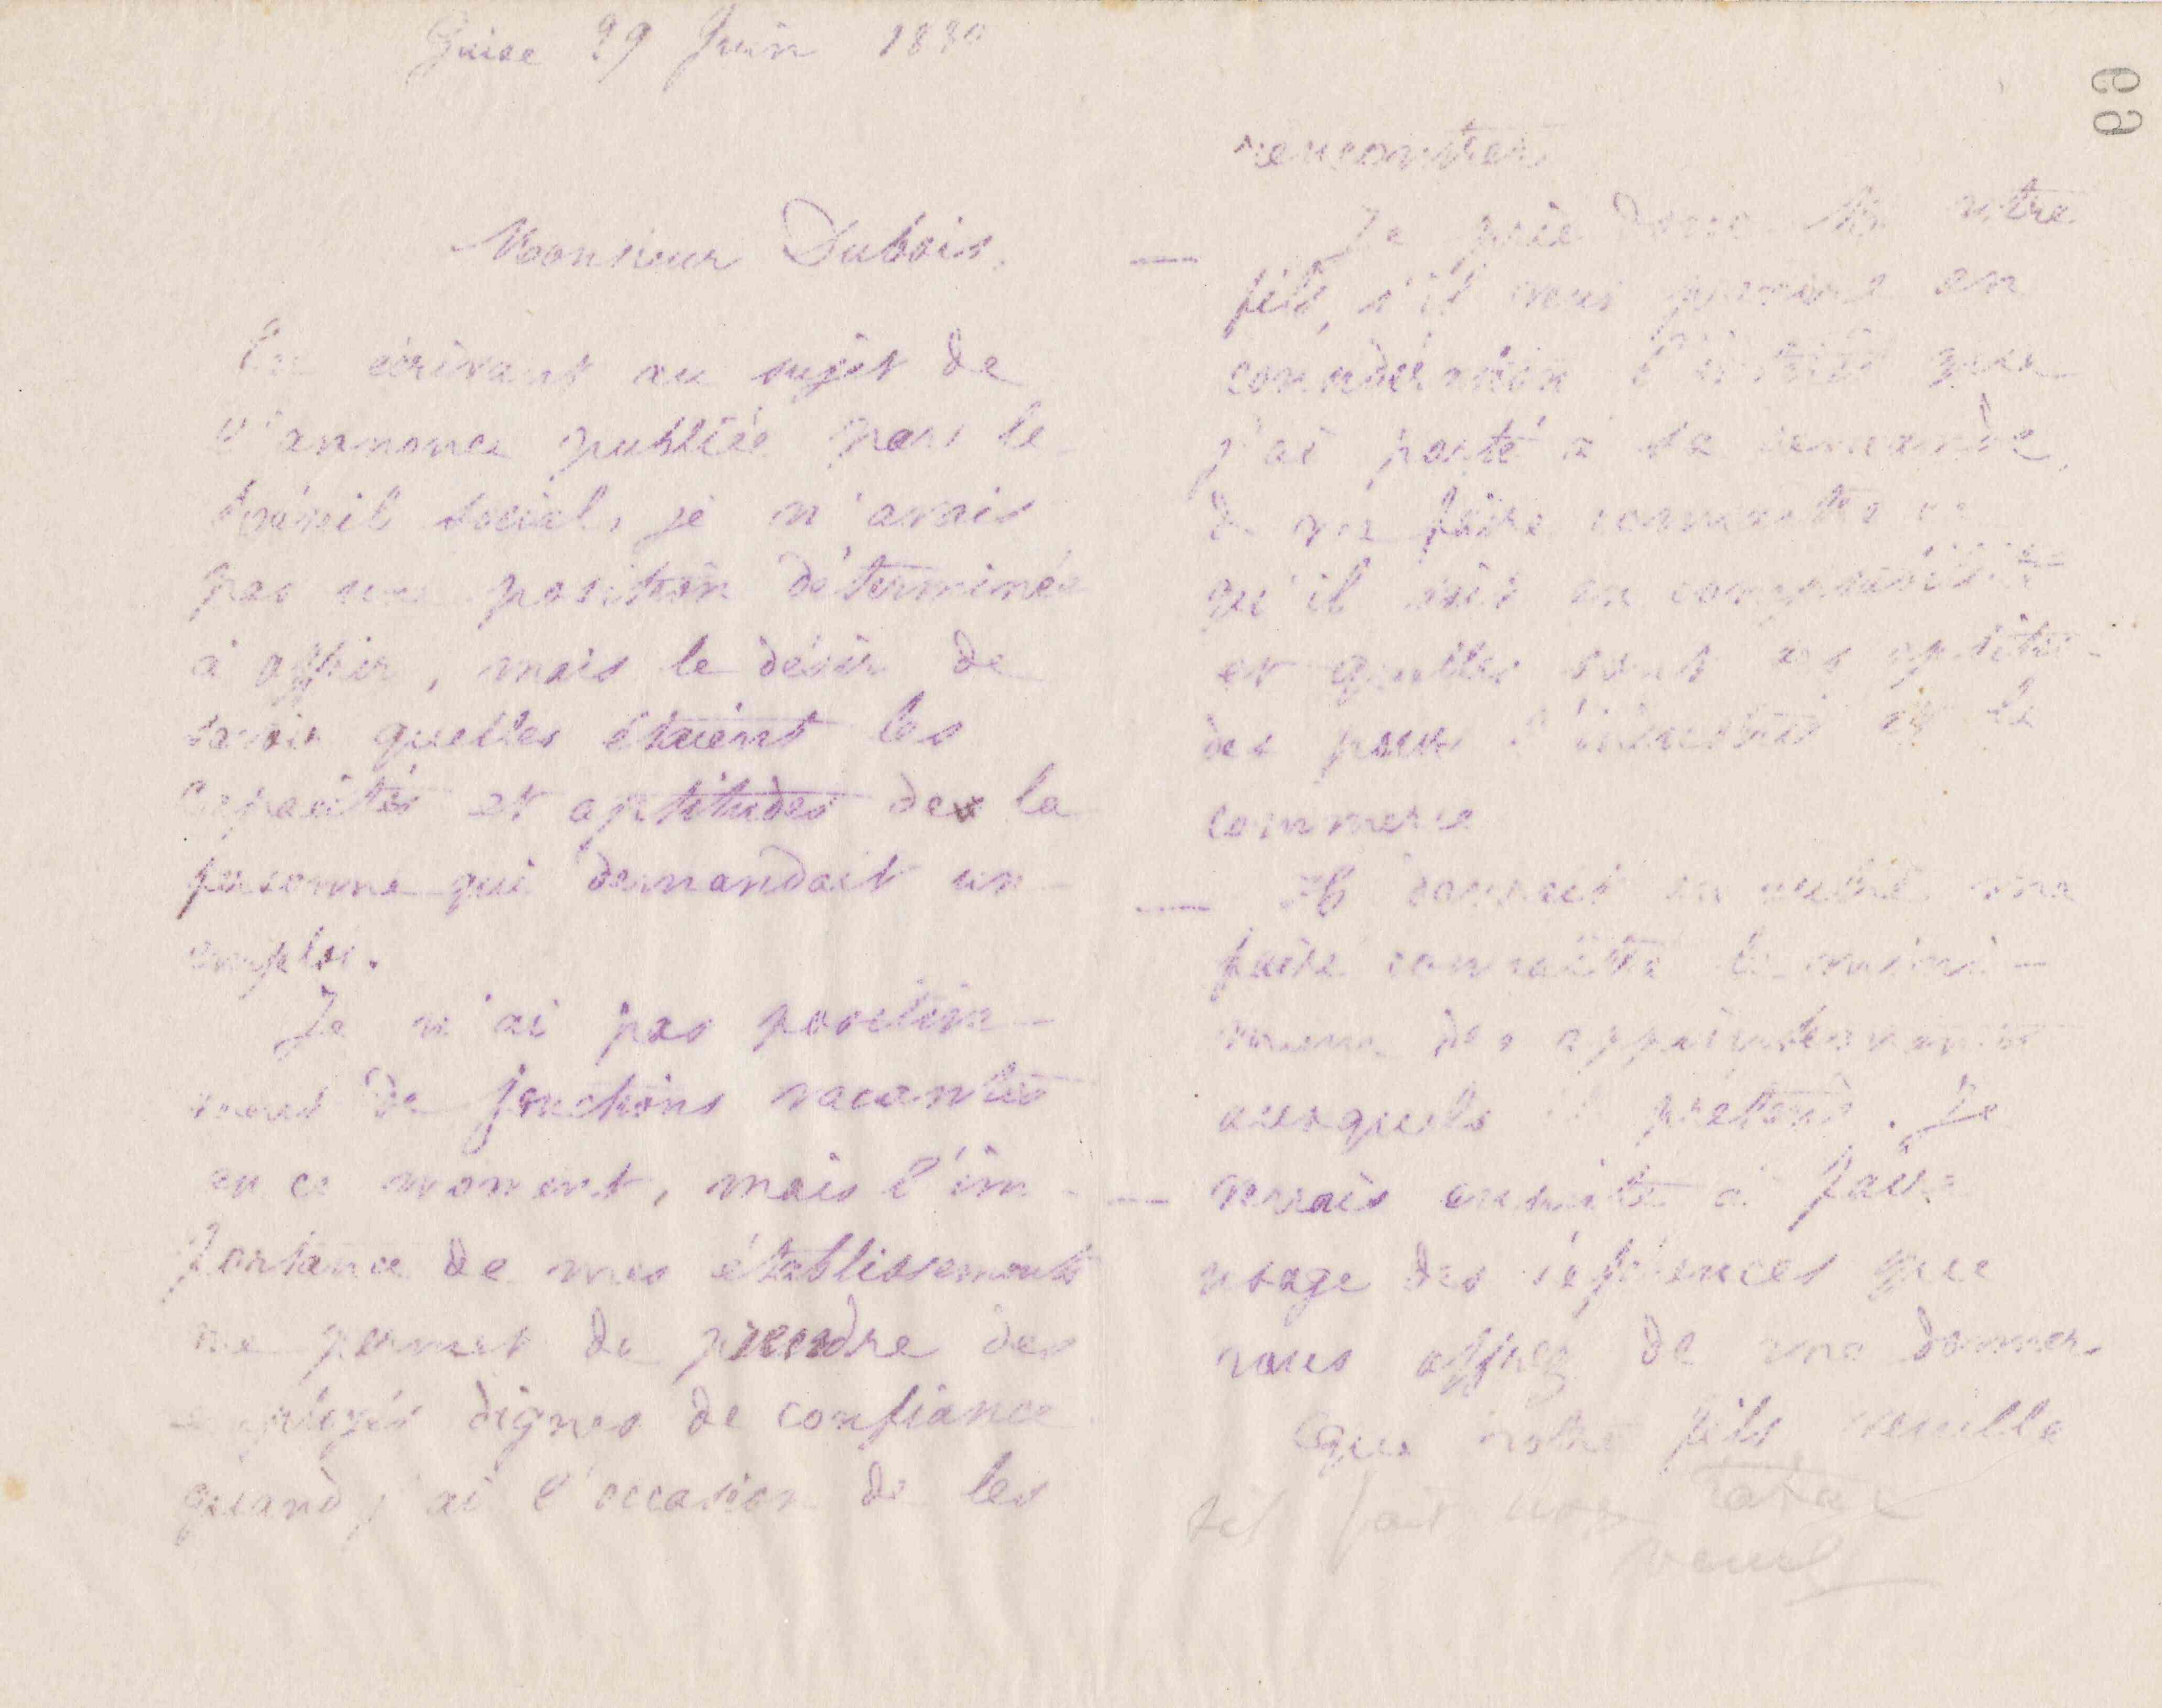 Guise 29 Juin 1880
Monsieur Dubois,
En écrivant au sujet de
l'annonce publiée par le
travail social, je n'avais
pas une position déterminée
à offrir, mais le désir de
savoir quelles étaient les
capacités et aptitudes de la
personne qui demandait un
emploi.
Je n'ai pas positive-
ment de fonctions vacantes
en ce moment, mais l'im-
portance de mes établissements
me permet de prendre des
employés dignes de confiance
quand j'ai l'occasion de les
rencontrer
Je prie donc votre
fils, s'il veut prendre en
considération l'intérêt que
j'ai porté à sa demande,
de me faire connaître ce
qu'il sait en comptabilité
et quelles sont ses aptitu-
des pour l'industrie et le
commerce
Il devrait en outre me
faire connaître le mini-
mum des appointements
auxquels il prétend. Je
verrais ensuite à faire
usage des références que
vous offrez de me donner.
Que votre fils veuille
69